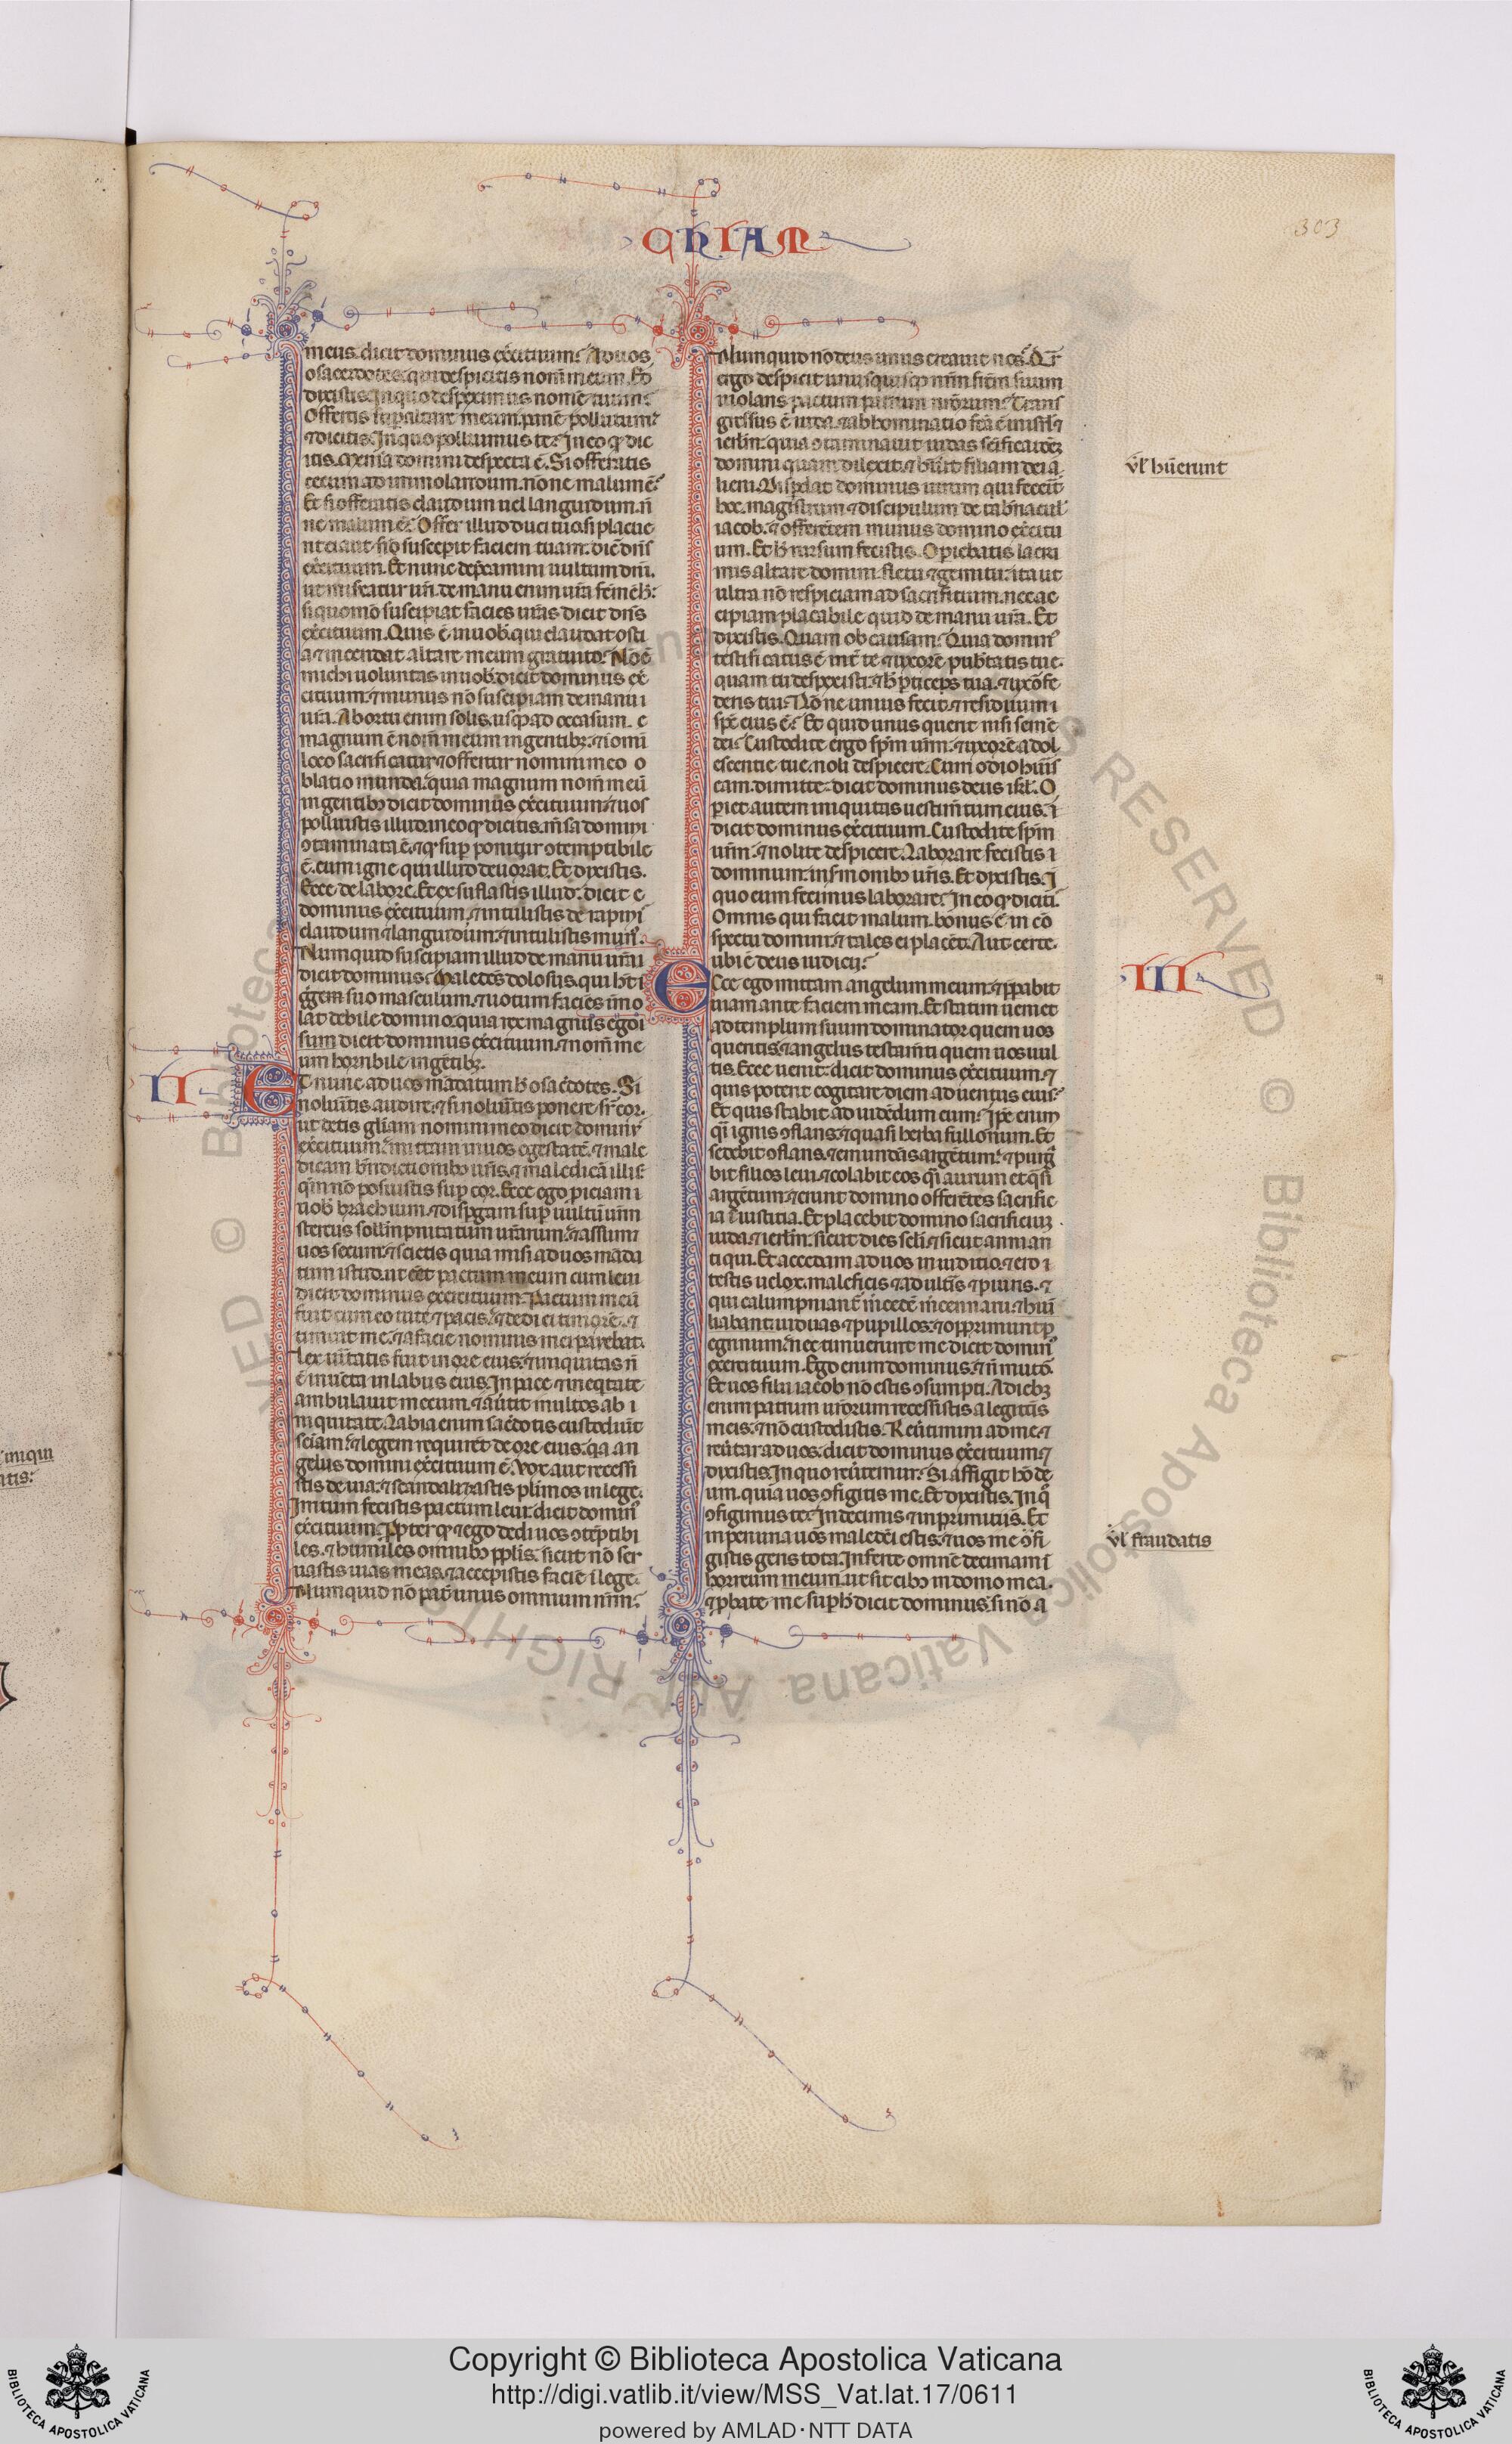 CHIAM
303
meus. dicit dominus exẽcituum? Ad uos
o sacerdotes. qui despicitis nom̃ meum. Et
dixistis. In quo despeximus nomẽ tuum?
Offertis sup altare meum panẽ pollutum?
⁊ dicitis. In quo polluimus te? In eo ꝙ dic
itis. Mensa domini despecta ẽ. Si offeratis
cecum ad immolandum. nõne malum ẽ?
Et si offeratis claudum uel languidum. ñ
ne malum ẽ? Offer illud duci tuo. si placue
rit ei aut si suscepit faciem tuam. dic̃ dñs
exẽcituum. Et nunc dep̃camini uultum dñi.
ut misereatur ur̃i. de manu enim ur̃a fc̃m ẽ h̃.
si quomõ suscipiat facies ur̃as dicit dñs
exẽcituum. Quis ẽ in uob̃. qui claudat osti
a ⁊ incendat altare meum gratuito? Nõ ẽ
michi uoluntas in uob̃. dicit dominus ex̃
cituum. ⁊ munus nõ suscipiam de manu i
ur̃a. Ab ortu enim solis. usq; ad occasum. e
magnum ẽ nom̃ meum in gentib;. ⁊ in om̃i
loco sacrificatur ⁊ offertur nomini meo o
blatio munda. quia magnum nom̃ meũ
in gentib; dicit dominus exẽcituum. ⁊ uos
polluistis illud. in eo ꝙ dicitis. m̃sa domini
ↄtaminata ẽ. ⁊ ꝙ sup ponitur ↄtemptibile
ẽ. cum igne qui illud deuorat. Et dixistis.
Ecce de labore. Et exsuflastis illud. dicit e
dominus exẽcituum. ⁊ intulistis de rapinis
claudum ⁊ languidum. ⁊ intulistis mun̾.
Numquid suscipiam illud de manu ur̃a i
dicit dominus? Maledc̃s dolosus. qui h̃t i
grẽge suo masculum. ⁊ uotum facies im̃o
lat debile domino. quia rex magnus ego i
sum dicit dominus exẽcituum. ⁊ nom̃ me
um horribile in gẽtib;.
II
ET nunc ad uos mãdatum h̃ o sac̃dotes. Si
nolũitis audire. ⁊ si nolũitis ponere sr̃ cor.
ut detis gl̃iam nomini meo dicit domin̾
exẽcituum. mittam in uos egestatẽ. ⁊ male
dicam bñdictionib; ur̃is. ⁊ maledicã illis.
qm̃ nõ posuistis sup cor. Ecce ego piciam i
uob̃ brachium. ⁊ dispgam sup uultũ ur̃m
stercus sollẽpnitatum ur̃arum. ⁊ assum
uos secum. ⁊ scietis quia misi ad uos mãda
tum istud. ut eẽt pactum meum cum leui
dicit dominus exercituum. Pactum meũ
fuit cum eo uite ⁊ pacis. ⁊ dedi ei timorẽ. ⁊
timuit me. ⁊ a facie nominis mei pauebat.
Lex ũitatis fuit in ore eius. ⁊ iniquitas ñ
ẽ inuẽta in labiis eius. In pace ⁊ in eq̃tate
ambulauit mecum. ⁊ aũtit multos ab i
iniquitate. Labia enim sac̃dotis custodiũt
sciam. ⁊ legem requirẽt de ore eius. q̃a an
gelus domini exẽcituum ẽ. Vos aut̃ recessi
stis de uia. ⁊ scandaliz̃astis plim̃os in lege.
Irritum fecistis pactum leui. dicit domin̾
exẽcituum. Ppter qđ ⁊ ego dedi uos ↄtẽptibi
les. ⁊ humiles omnib; pplis. sicut nõ ser
uastis uias meas. ⁊ accepistis faciẽ i lege.
Numquid nõ pat̃ unus omnium nr̃m?
Numquid nõ deus unus creauit nos? Q̃r
ergo despicit unusquisq; nr̃m fr̃em suum
uiolans pactum patrum nr̃orum? Trans
gressus ẽ iuda. ⁊ abhominatio fc̃a ẽ in isr̃l ⁊
ierl̃m. quia ↄtaminauit iudas sc̃ificatiõez
domini quam dilexit. ⁊ h̃uit filiam dei a
lieni. Disp̃dat dominus uirum qui fecerit
hoc. magistrum ⁊ discipulum de tab̃nacul̃
iacob. ⁊ offerẽtem munus domino exẽcitu
um. Et h̃ rursum fecistis. Opiebatis lacri
mis altare domini. fletu ⁊ gemitu. ita ut
ultra nõ respiciam ad sacrificium. nec ac
cipiam placabile quid de manu ur̃a. Et
dixistis. Quam ob causam? Quia domin̾
testificatus ẽ int̃ te ⁊ uxorẽ pub̃tatis tue.
quam tu despexisti. ⁊ h̃ pticeps tua. ⁊ uxor̃ fe
deris tui. Nõne unus fecit. ⁊ residuum i
sp̃c eius ẽ? Et quid unus querit nisi semẽ
dei? Custodite ergo sp̃m ur̃m. ⁊ uxorẽ adol
escentie tue. noli despicere. Cum odio h̃uis
eam. dimitte. dicit dominus deus isr̃l. O
piet autem iniquitas uestim̃tum eius. i
dicit dominus exẽcituum. Custodite sp̃m
ur̃m. ⁊ nolite despicere. Laborare fecistis i
dominum. in sm̃onib; ur̃is. Et dixistis. I
quo eum fecimus laborare? In eo ꝙ diciti.
Omnis qui facit malum. bonus ẽ in cõ
spectu domini. ⁊ tales ei placẽt. Aut certe.
ubi ẽ deus iudicij?
III
Ecce ego mittam angelum meum. ⁊ pparabit
uiam ante faciem meam. Et statim ueniet
ad templum suum dominator quem uos
queritis. ⁊ angelus testam̃ti quem uos uul
tis. Ecce uenit. dicit dominus exẽcituum. ⁊
quis poterit cogitare diem aduentus eius?
Et quis stabit ad uidẽdum eum? Ip̃e enim
q̃i ignis ↄflans. ⁊ quasi herba fullonum. Et
sedebit ↄflans. ⁊ emundãs argẽtum. ⁊ purg̃
bit filios leui. ⁊ colabit eos q̃i aurum et q̃si
argẽtum. ⁊ erunt domino offerẽtes sacrific
ia ĩ iustitia. Et placebit domino sacrificiuz
iuda. ⁊ ierl̃m. sicut dies sc̃li. ⁊ sicut anni an
tiqui. Et accedam ad uos in iuditio. ⁊ ero i
testis uelox. maleficis ⁊ adult̃is ⁊ piuris. ⁊
qui calumpniant̃ m̃cedẽ m̃cennarii. ⁊ hũi
liabant uiduas ⁊ pupillos. ⁊ opprimunt p
egrinum. nec timuerunt me dicit domin̾
exercituum. Ego enim dominus. ⁊ ñ mutõ.
Et uos filii iacob nõ estis ↄsumpti. A dieb;
enim patrum ur̃orum recessistis a legitiis
meis. ⁊ nõ custodistis. Reũtimini ad me ⁊
reũtar ad uos. dicit dominus exẽcituum. ⁊
dixistis. In quo reũtemur? Si affigit hõ de
um. quia uos ↄfigitis me. Et dixistis. In q̃
ↄfigimus te? In decimis ⁊ in primitiis. Et
in penuria uos maledc̃i estis. ⁊ uos me ↄfi
gistis gens tota. Inferte omnẽ decimam ĩ
horreum meum. ut sit cib; in domo mea.
⁊ pbate me sup h̃ dicit dominus. si nõ a
vl̃ hũerunt
vl̃ fraudatis
Copyright © Biblioteca Apostolica Vaticana
http://digi.vatlib.it/view/MSS_Vat.lat.17/0611
powered by AMLAD·NTT DATA
BIBLIOTECA APOSTOLICA VATICANA
BIBLIOTECA APOSTOLICA VATICANA